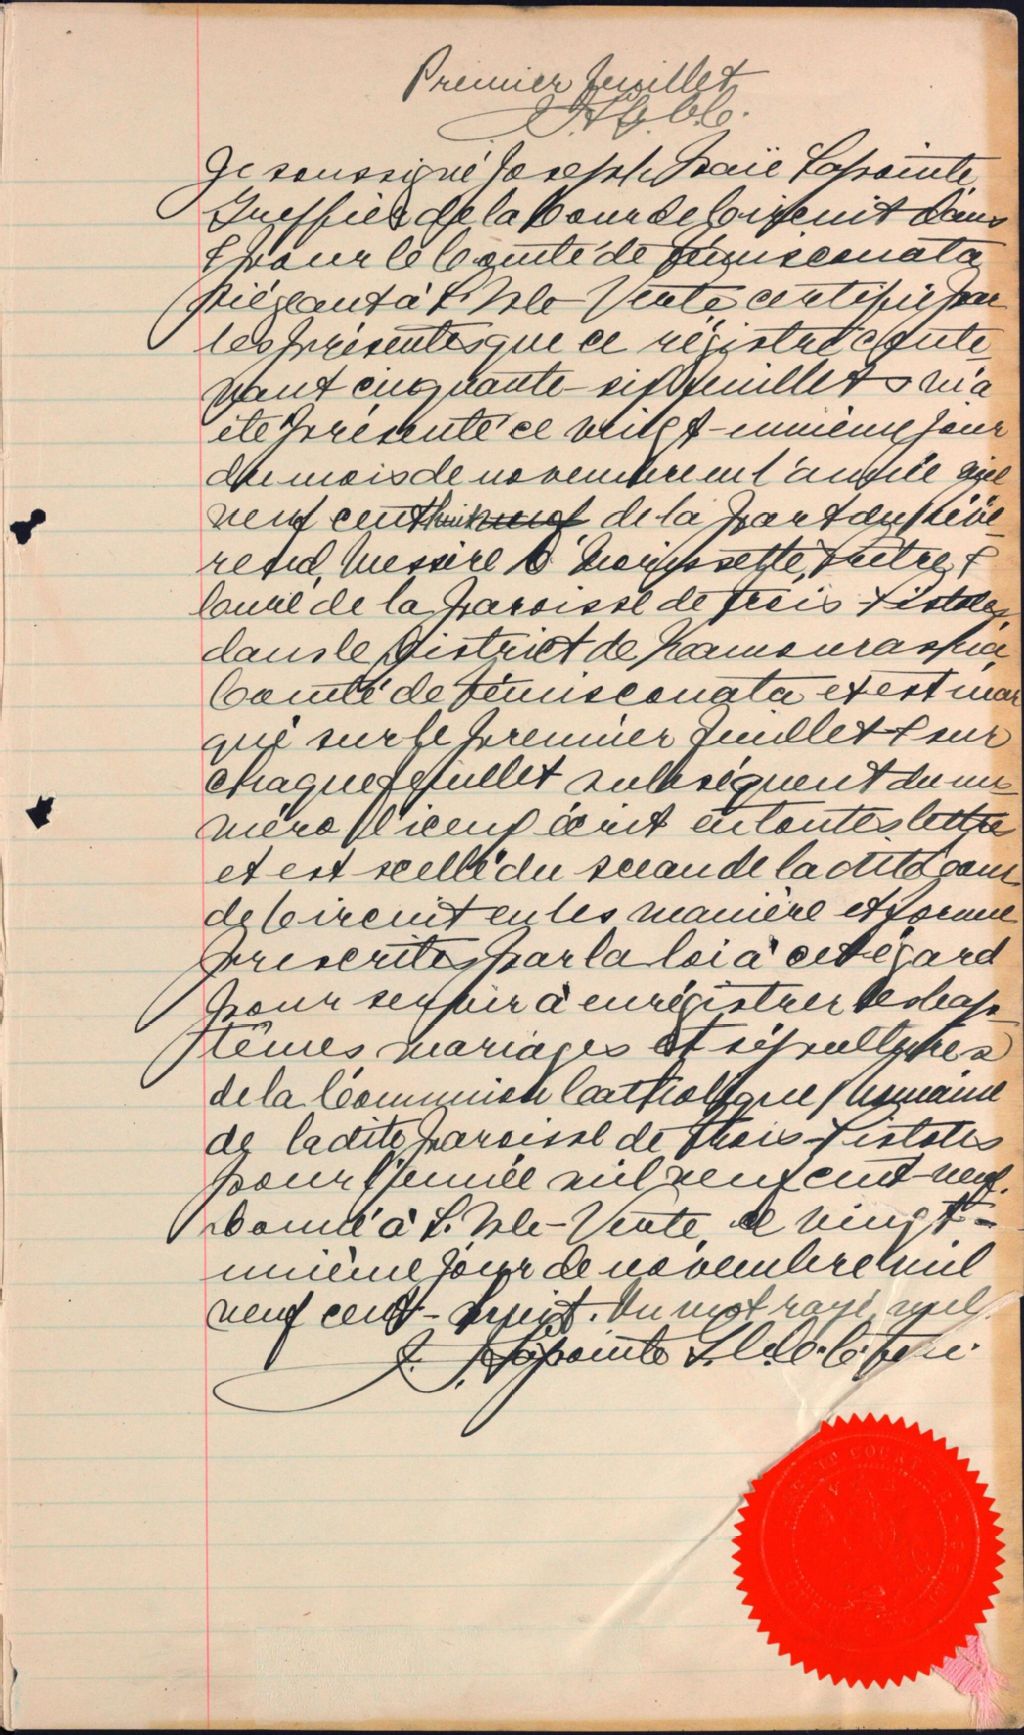 Premier feuillet
G.C.C.
Je soussigné Joseph Isaïe Lapointe
Greffier de la Cour de Circuit dans
& pour le Comté de Témisconata
siégeant à L'Isle-Verte certifie par
les présentes que ce régistre conte
nant cinquante-six feuillets m'a
été présenté ce vingt-unième jour
du mois de novembre en l'année mil
neuf cent de la part du Révé
rend Messire Morissette, Prêtre &
Curé de la paroisse de Trois-Pistoles
dans le District de Kamouraska,
Comté de Témisconata et est mar
qué sur le premier feuillet & sur
chaque feuillet subséquent du nu
méro d'iceux écrit en toutes lettres
et est scellé du sceau de la dite Cour
de Circuit en les manière et forme
prescrites par la loi à cet égard
pour servir à enrégistrer les bap
têmes mariages et sépultures
de la Communion Catholique Romaine
de la dite paroisse de Trois-Pistoles
pour l'année mil neuf cent-neuf.
Donné à L'Isle-Verte, ce vingt-
unième jour de novembre mil
neuf cent-huit. Un mot rayé nul.
J. I. Lapointe G.C.C. Tém.